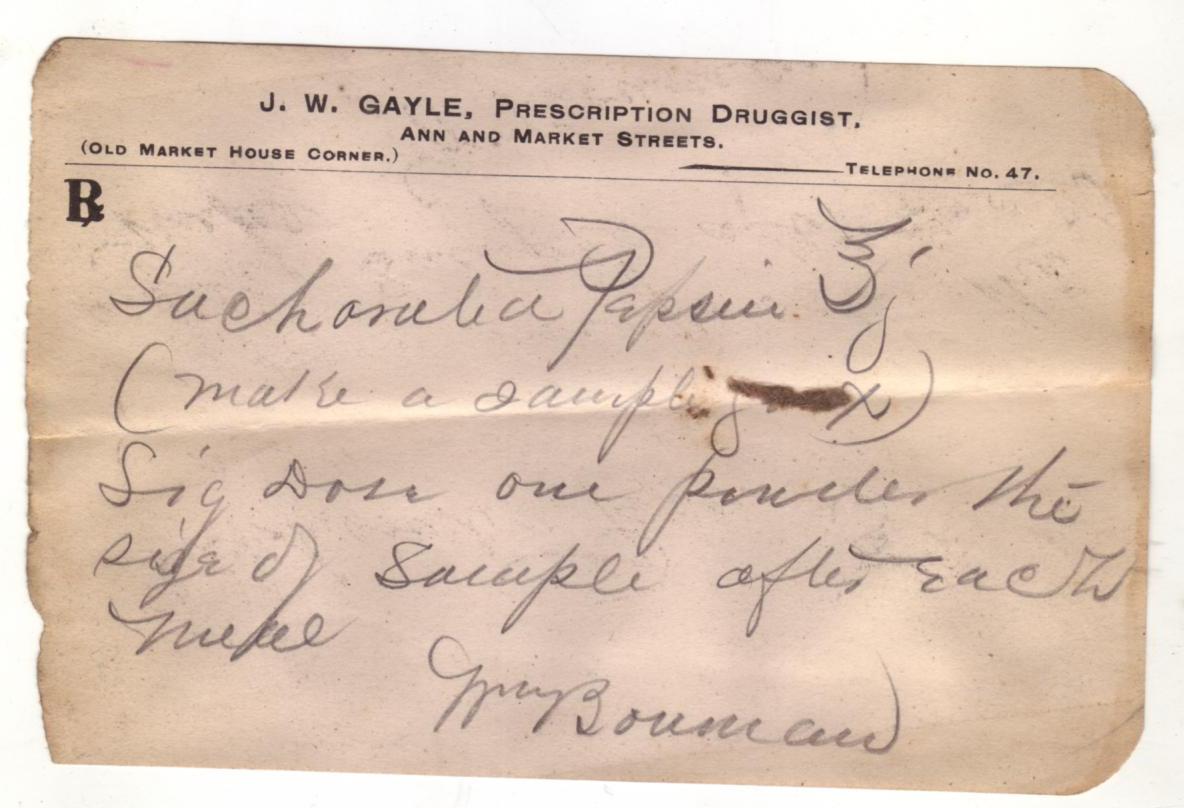 J. W. GAYLE, PRESCRIPTION DRUGGIST,
ANN AND MARKET STREETS.
(OLD MARKET HOUSE CORNER.)
TELEPHONE NO. 47.
℞
Sacharated Pepsin ʒj
(make a sample)
Sig Dose one powder the
size of sample after each
meal
Bowman